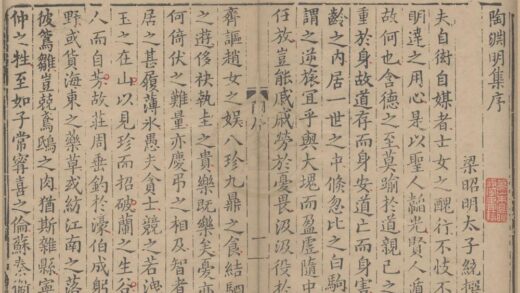 陶淵明集序
梁昭明太子統撰
夫自衒自媒者士女之醜行不忮不
明達之用心是以聖人韜光賢人遁
故何也含德之至莫踰於道親己之
重於身故道存而身安道亡而身害
齡之内居一世之中倏忽比之白駒
謂之逆旅宜乎與大塊而盈虛隨中
任放豈能戚戚勞於憂畏汲汲役於
一
齊謳趙女之娛八珍九鼎之食結駟
之遊侈袂執圭之貴樂既樂矣憂亦
何倚伏之難量亦慶弔之相及智者
居之甚履薄冰愚夫貪士競之若洩
玉之在山以見珍而招破蘭之生谷
人而自芳故莊周垂釣於濠伯成躬
野或貨海東之藥草或紡江南之落
彼鴛雛豈競鳶鴟之肉猶斯雜縣寧
仲之牲至如子常寗喜之倫蘇秦衛